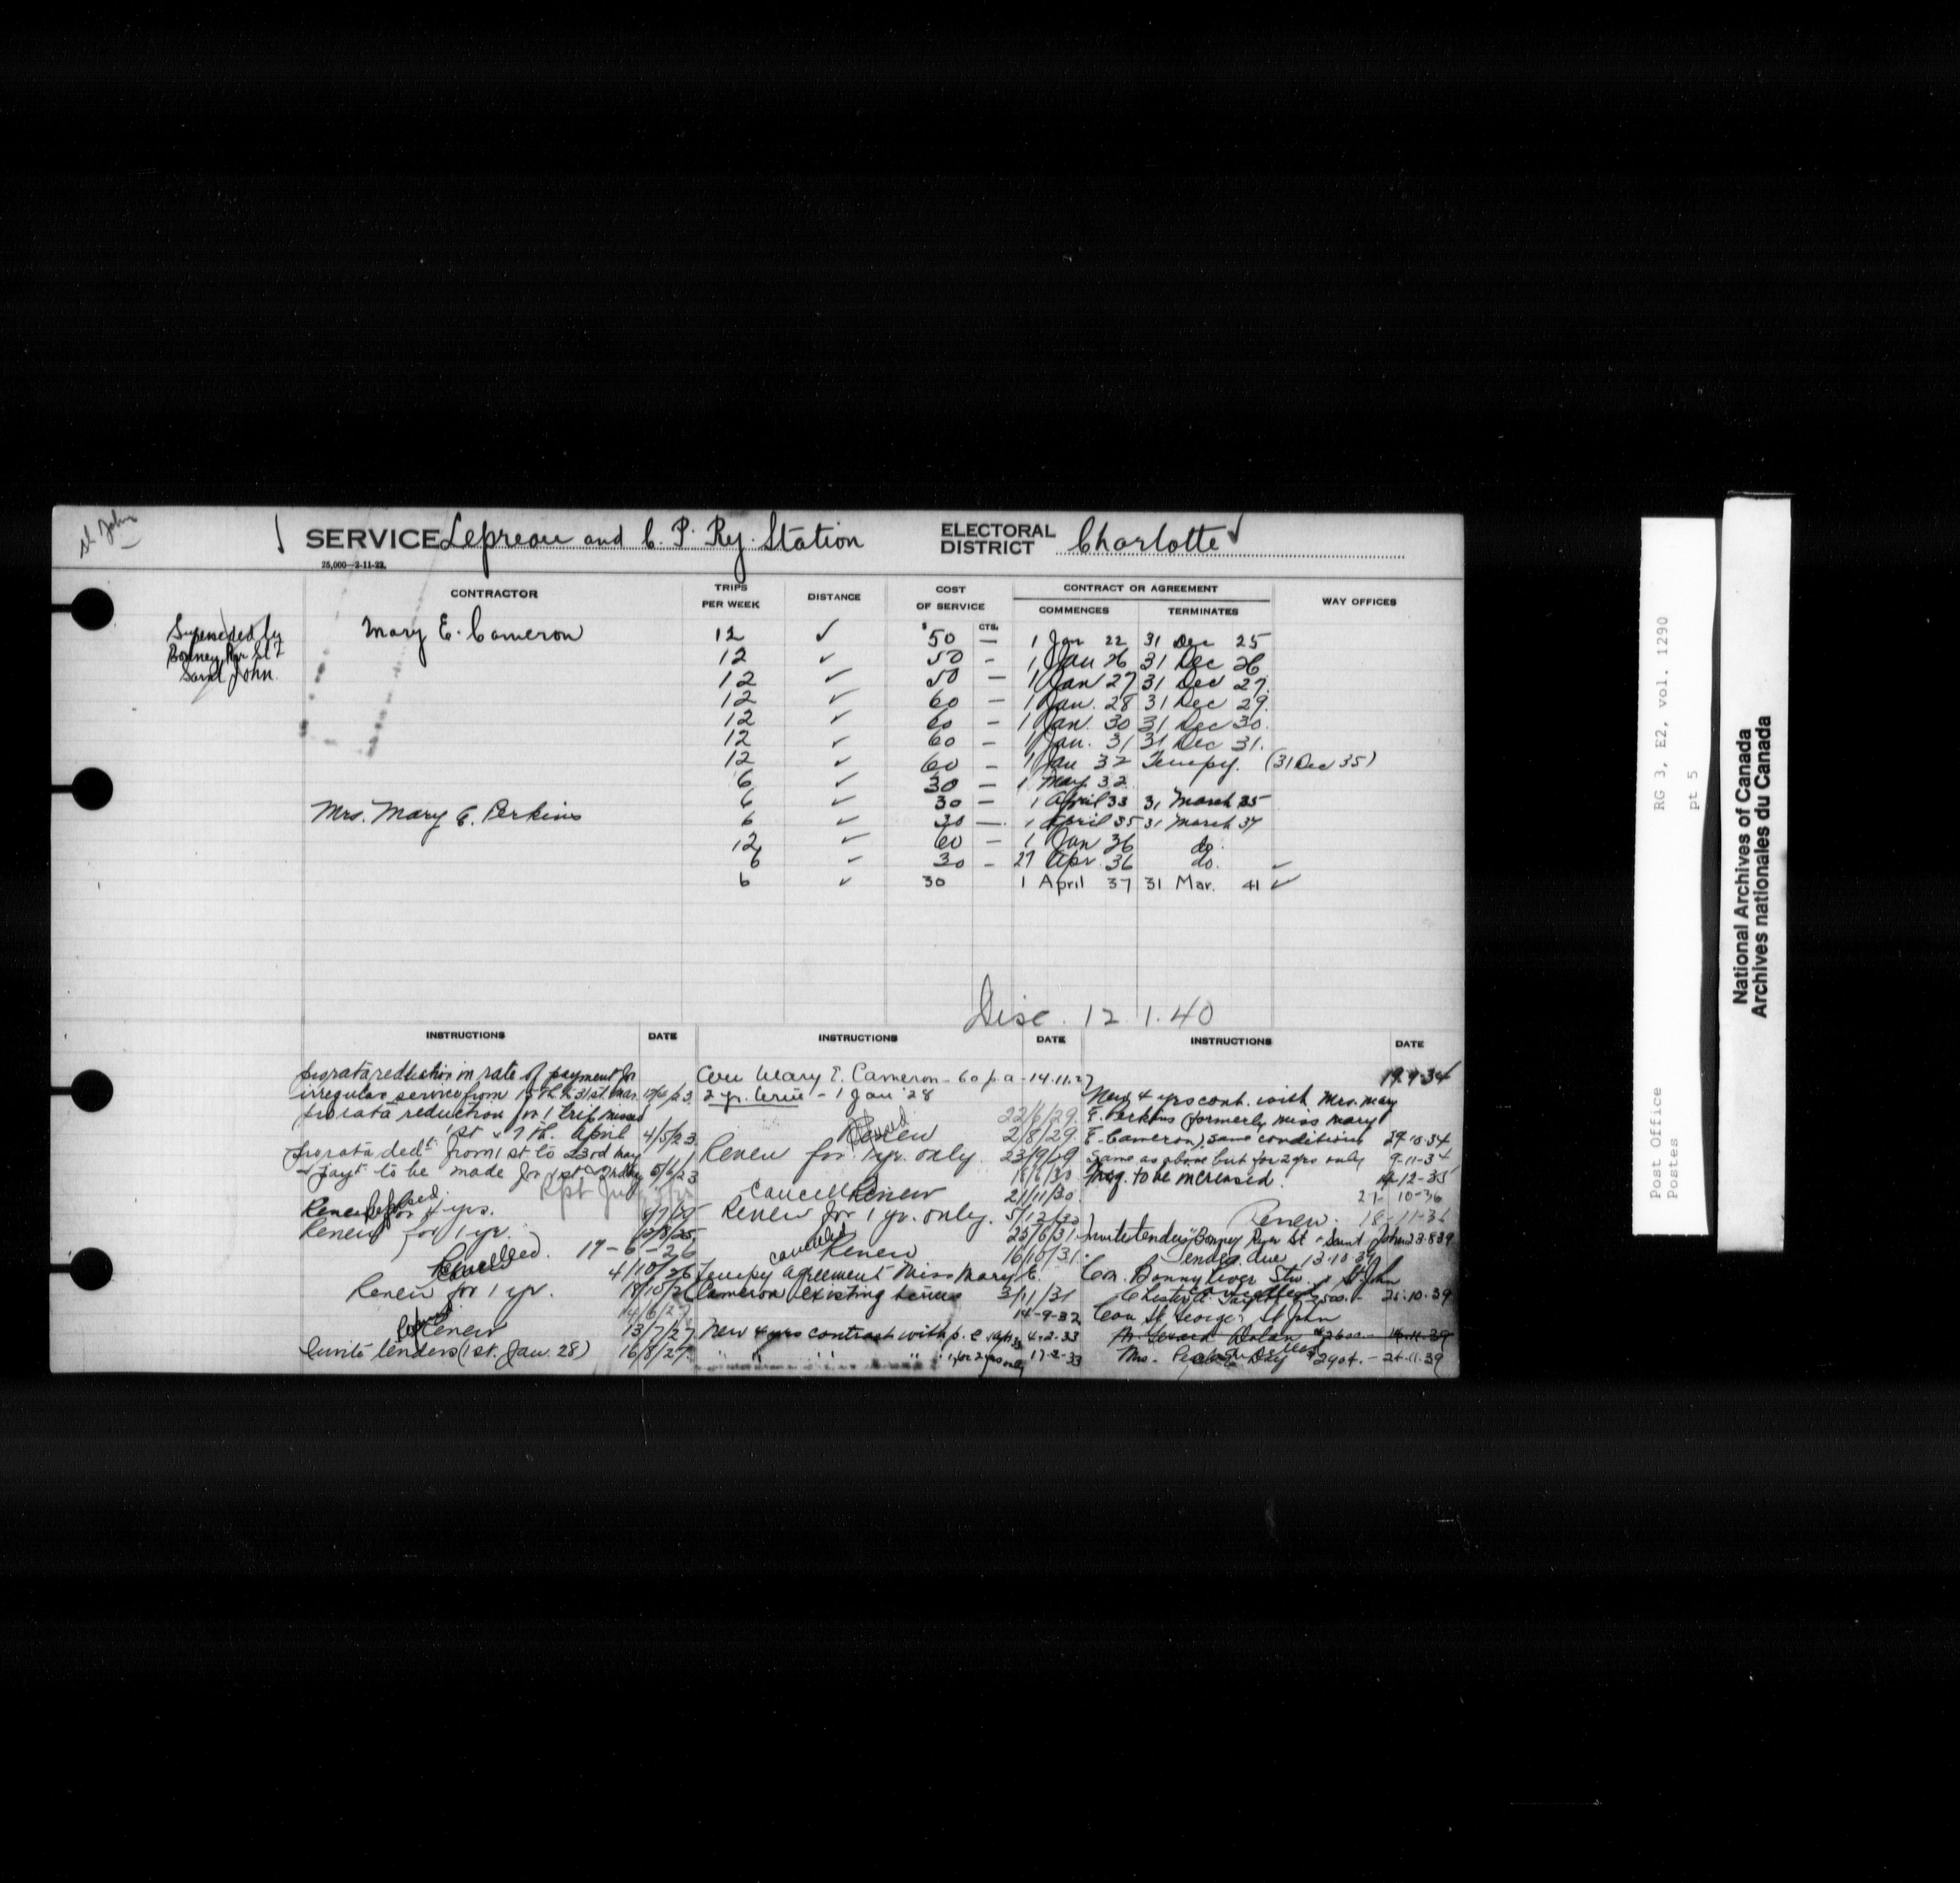 St John
SERVICE Lepreau and C. P. Ry. Station ELECTORAL DISTRICT Charlotte
25,000—2-11-22.
CONTRACTOR TRIPS PER WEEK DISTANCE COST OF SERVICE CONTRACT OR AGREEMENT WAY OFFICES
COMMENCES TERMINATES
$ CTS.
Superseded by
Bonney Rvr St &
Saint John.
Mary E. Cameron 12 ✓ 50 — 1 Jan 22 31 Dec 25
12 ✓ 50 - 1 Jan 26 31 Dec 26
12 ✓ 50 — 1 Jan 27 31 Dec 27.
12 ✓ 60 — 1 Jan. 28 31 Dec 29.
12 ✓ 60 — 1 Jan. 30 31 Dec 30.
12 ✓ 60 — 1 Jan. 31 31 Dec 31.
12 ✓ 60 — 1 Jan 32 Tempy. (31 Dec 35)
6 ✓ 30 — 1 May 32
6 ✓ 30 — 1 April 33 31 March 35
Mrs. Mary E. Perkins 6 ✓ 30 — 1 April 35 31 March 37
12 ✓ 60 — 1 Jan 36 do.
6 ✓ 30 - 27 Apr. 36 do. ✓
6 ✓ 30 1 April 37 31 Mar. 41 ✓
Disc. 12.1.40
INSTRUCTIONS DATE
prorata reduction in rate of payment for
irregular service from 15th to 31st Mar.
prorata reduction for 1 trip missed
1st & 7th. April 4/5/23.
prorata dedt. from 1st to 23rd May
& payt to be made for 1st & 2nd May 6/6/23
Renew for 4 yrs.
Renew for 1 yr. 12/8/25
Cancelled. 17-6-26
4/10/26
Renew for 1 yr. 19/10/26
14/6/27
Renew 13/7/27
Invite tenders (1st. Jan. 28) 16/8/27.
INSTRUCTIONS DATE
Con Mary E. Cameron - 60 p.a - 14.11.27
2 yr. term - 1 Jan '28
22/6/29.
Renew 2/8/29.
Renew for 1 yr. only. 23/9/29
18/6/30
Cancelled Renew 21/11/30
Renew for 1 yr. only. 5/12/30
23/6/31.
cancelled Renew 16/10/31.
Tempy agreement Miss Mary E.
Cameron existing terms 3/11/31
14-9-32
New 4 yrs contract with p. c 4-2-33
" " " " for 2 yrs only 17-2-33
INSTRUCTIONS DATE
19-9-34
New 4 yrs cont. with Mrs. Mary
E. Perkins (formerly Miss Mary
E. Cameron), same conditions 29-10-34
Same as above but for 2 yrs only 9-11-34
Freq. to be increased. 14-12-35
27-10-36
Renew. 18-11-36
Invite tenders "Bonney River St & Saint John" 23.8.39
Tenders due 13.10.39
Con. Bonny River Stn. & St. John
cancelled
Chester A. 2500.- 25.10.39
Con St. George & St John
M. Gerard Dolan $2600.- 14.11.39
cancelled
Mrs. Day $2904.- 24.11.39
Post Office RG 3, E2, vol. 1290
Postes pt 5
National Archives of Canada
Archives nationales du Canada